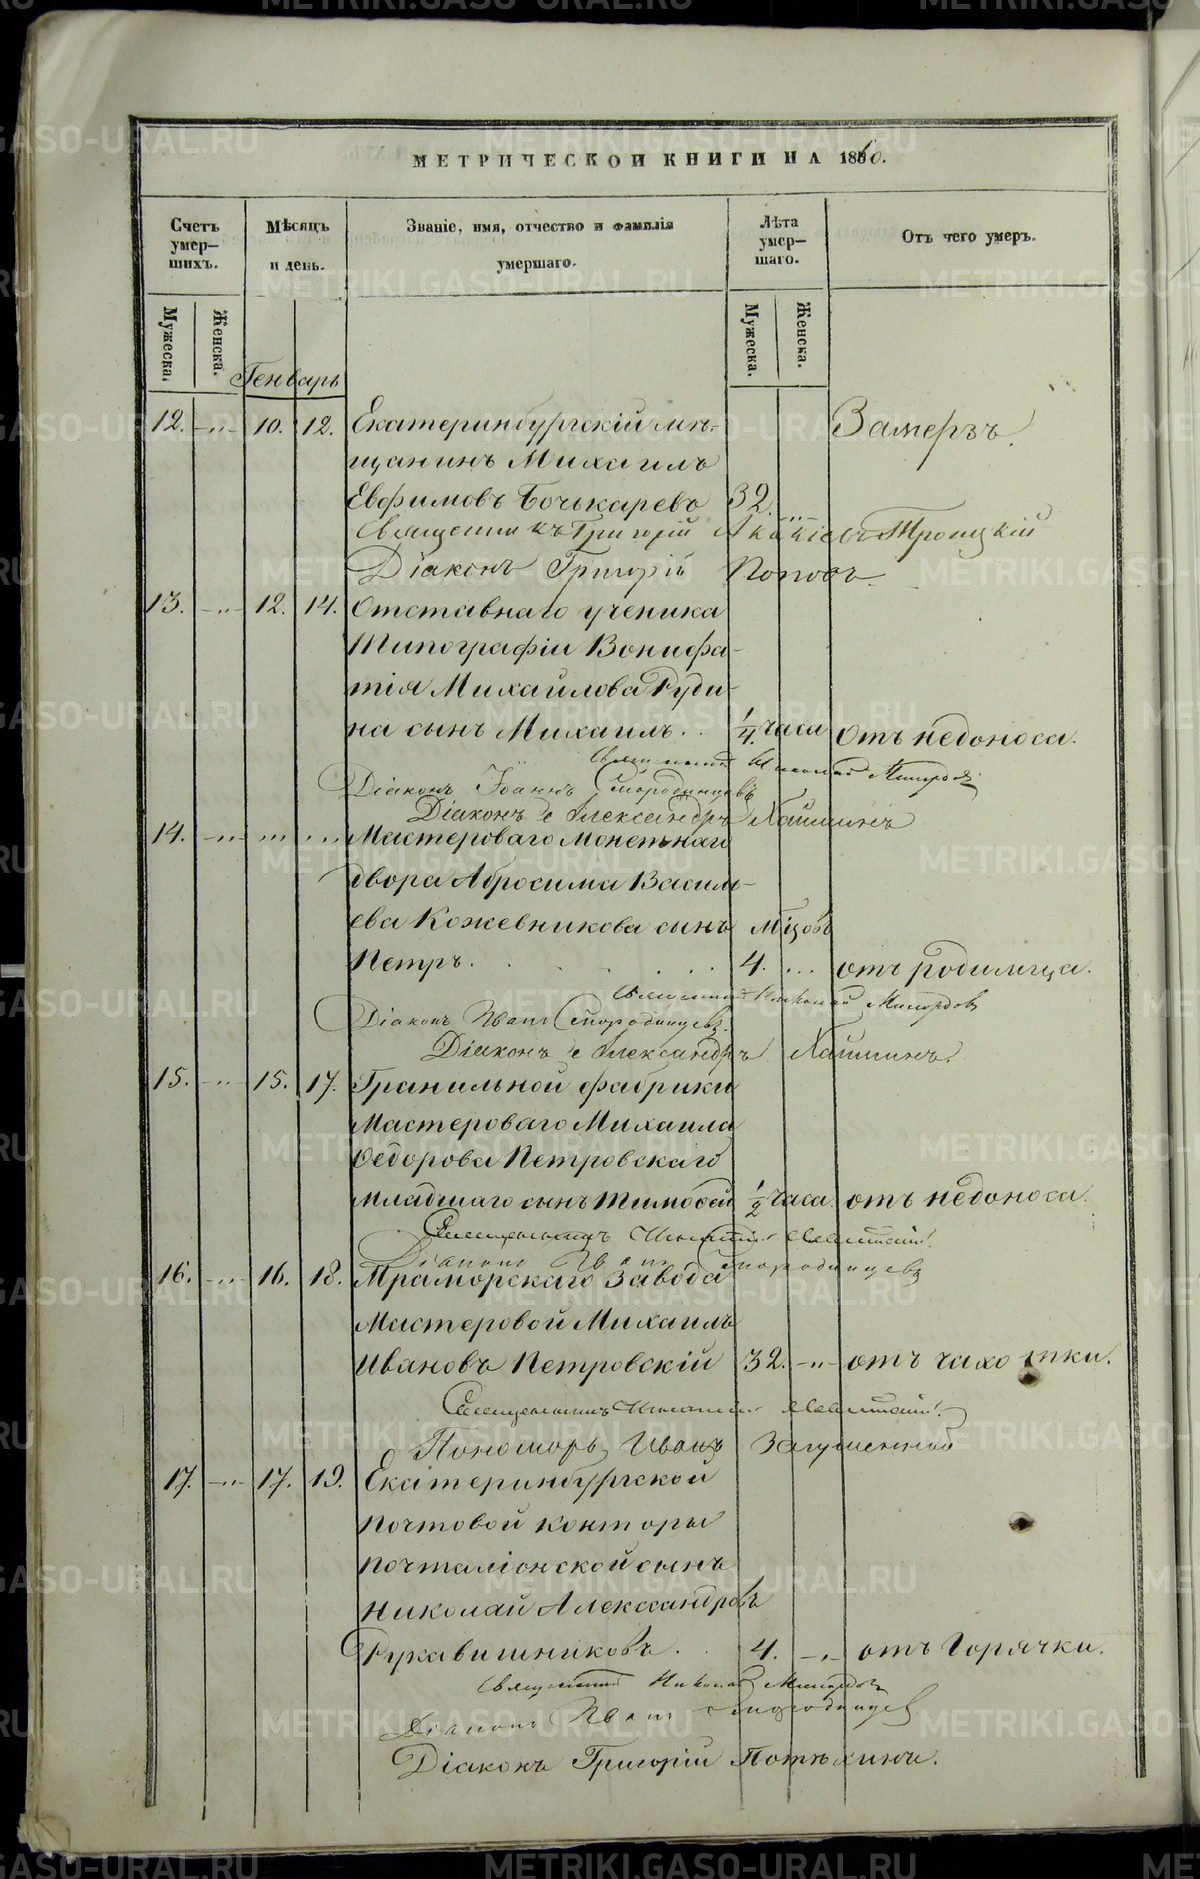 МЕТРИЧЕСКОЙ КНИГИ НА 1860.
Счетъ умер-шихъ.
Мѣсяцъ и день.
Званіе, имя, отчество и фамилія умершаго.
Лѣта умер-шаго.
Отъ чего умеръ.
Мужеска.
Женска.
Мужеска.
Женска.
Генварь
12. 10. 12. Екатеринбургскій мѣ-
щанинъ Михаилъ
Замерзъ.
Евфимовъ Бочькаревъ 32.
Священникъ Григорій Акакіевъ Троицкій
Діаконъ Григорій Поповъ
13. 12. 14. Отставнаго ученика
Типографіи Вонифа-
тія Михайлова Руди-
на сынъ Михаилъ 1/4 часа отъ недоноса.
Священник Николай
Діаконъ Іоаннъ Смородинцевъ
Діаконъ Александръ
14. Мастероваго Монетнаго
двора Абросима Василь-
ева Кожевникова сынъ мѣцовъ
Петръ. 4. отъ родимца.
Священник Николай
Діаконъ Иванъ Смородинцевъ
Діаконъ Александръ
15. 15. 17. Гранильной фабрики
Мастероваго Михаила
Ѳедорова Петровскаго
младшаго сынъ Тимоѳей 1/2 часа. отъ недоноса.
Священникъ
Діаконъ Иванъ Смородинцевъ
16. 16. 18. Мраморскаго Завода
Мастеровой Михаилъ
Ивановъ Петровскій 32. отъ чахотки.
Священникъ
Пономарь Иванъ
17. 17. 19. Екатеринбургской
Почтовой конторы
почталіонской сынъ
Николай Александровъ
Рукавишниковъ. 4. отъ Горячки.
Священник Николай
Діаконъ Иванъ Смородинцев
Діаконъ Григорій Потѣхинъ.
METRIKI.GASO-URAL.RU